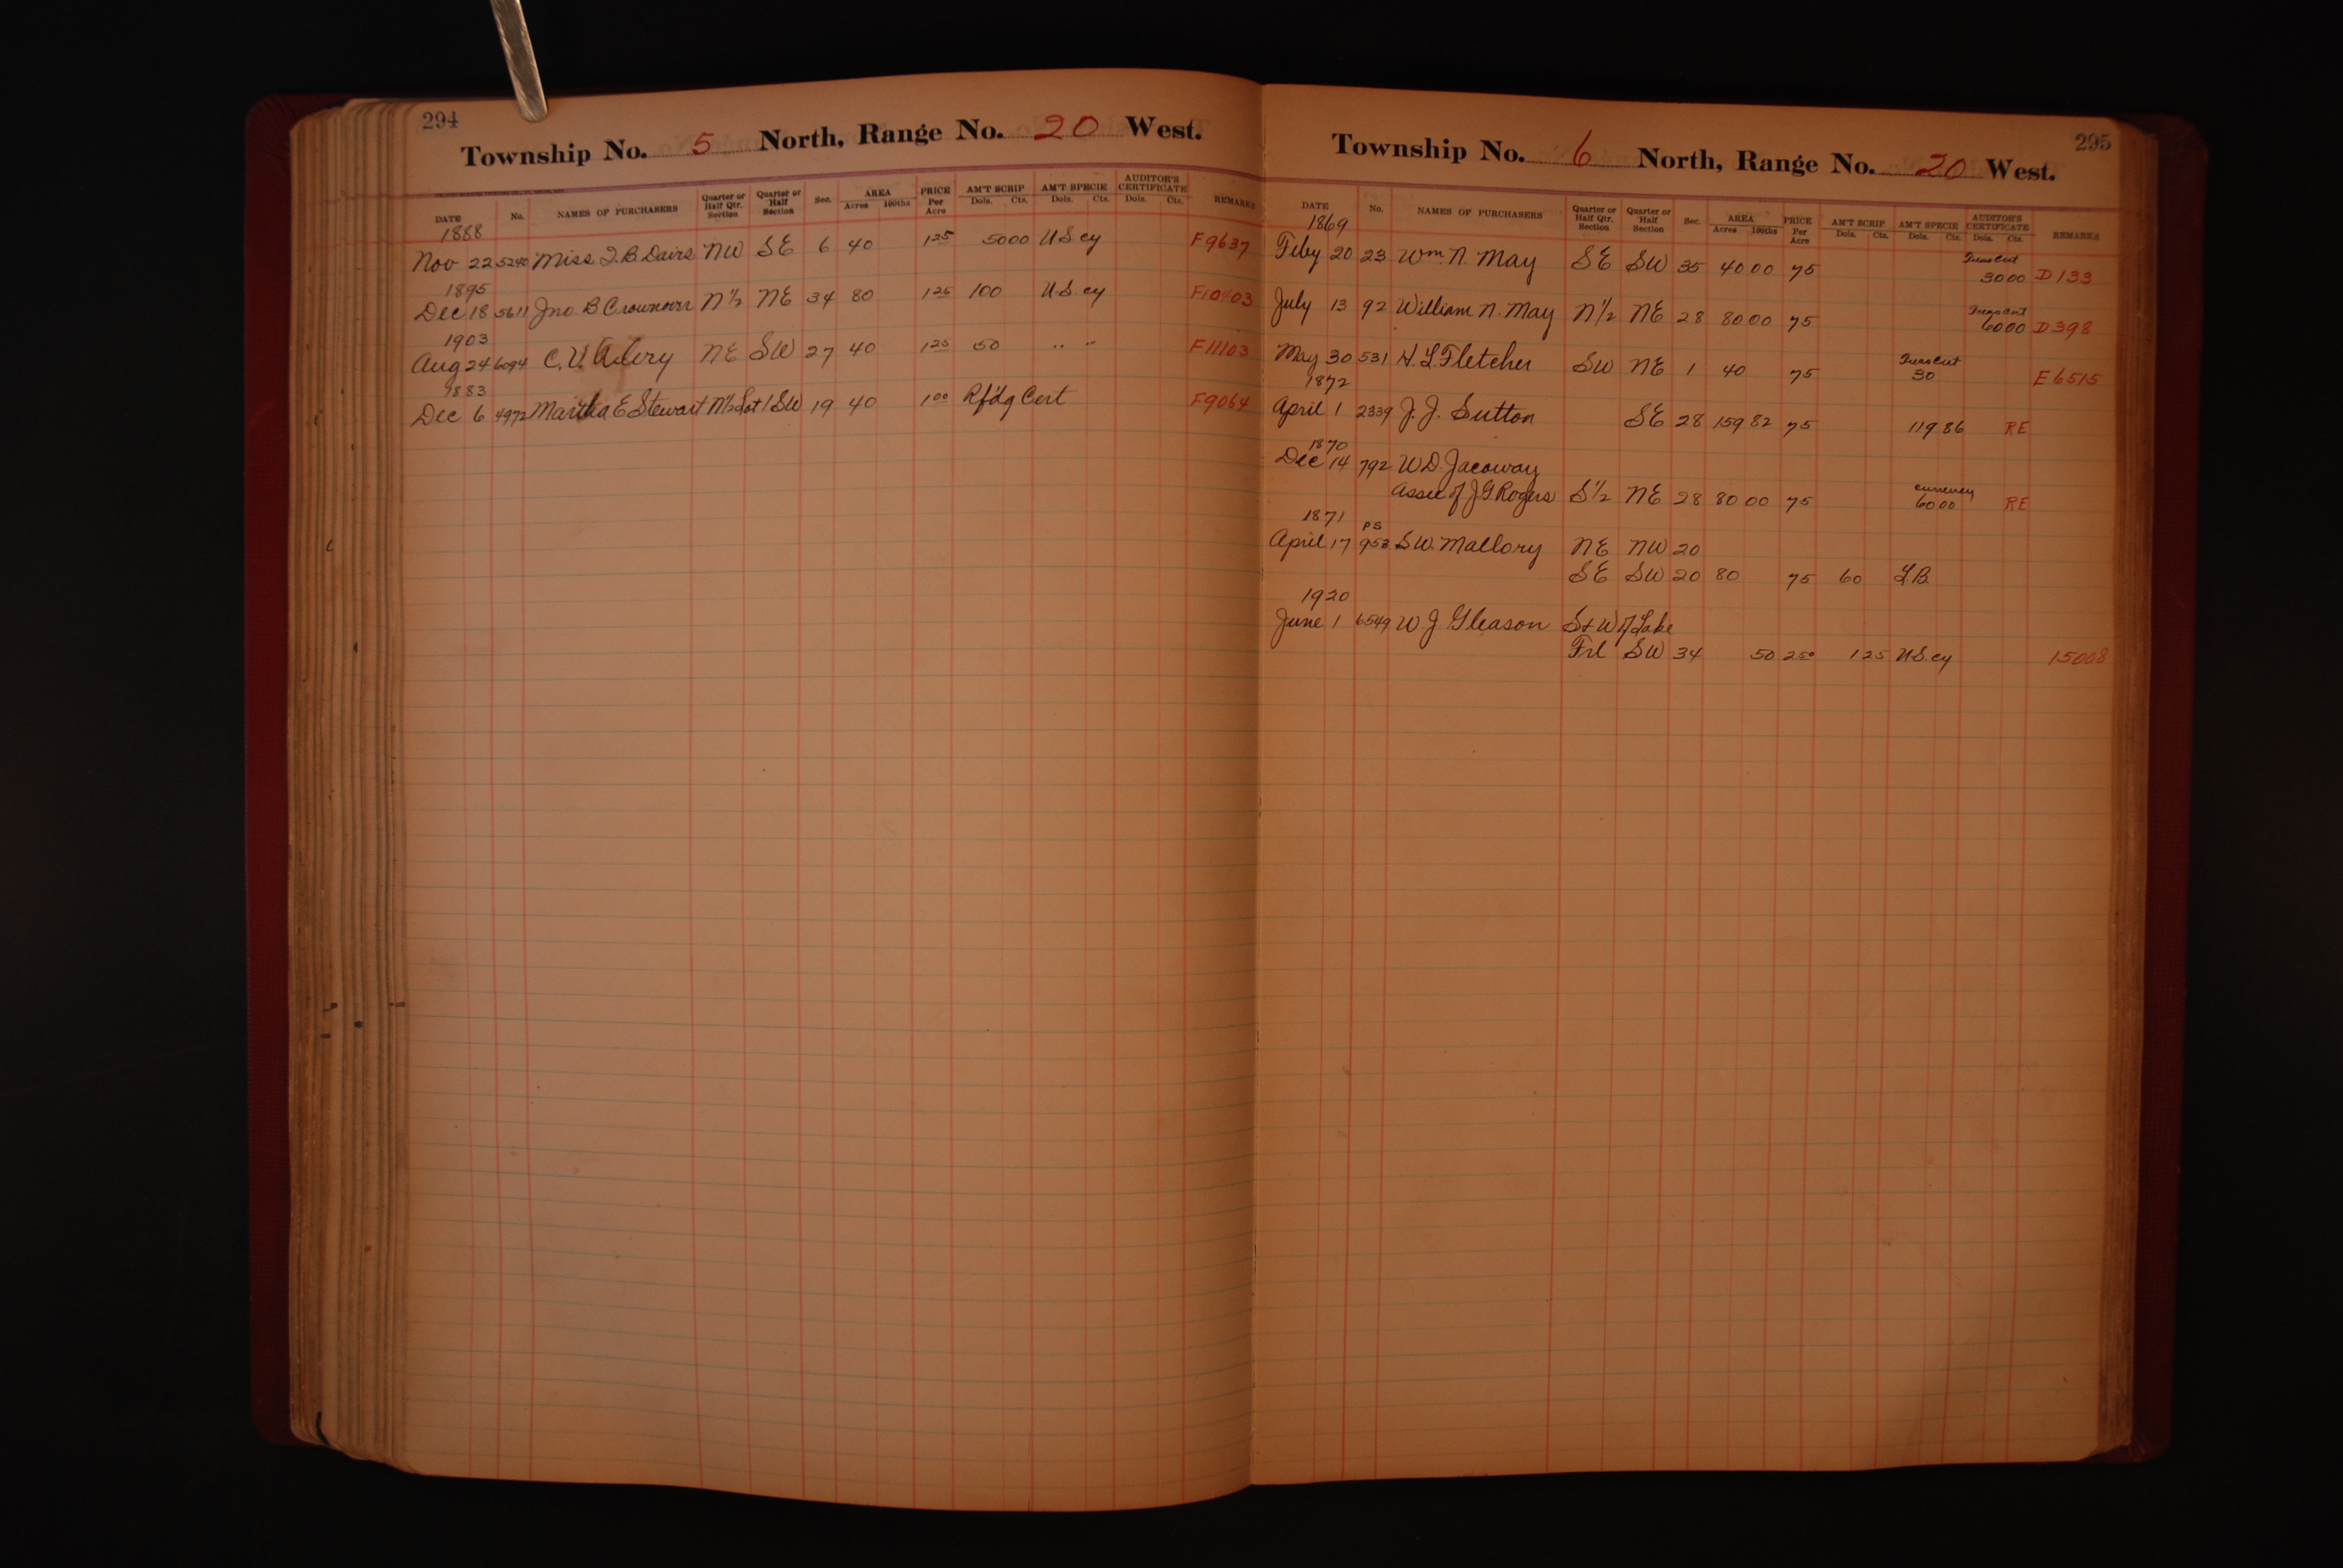 294
Township No. 5 North, Range No. 20 West.
DATE No. NAMES OF PURCHASERS Quarter or Half Qtr. Section Quarter or Half Section Sec. AREA Acres 100ths PRICE Per Acre AM'T SCRIP Dols. Cts. AM'T SPECIE Dols. Cts. AUDITOR'S CERTIFICATE Dols. Cts. REMARKS
1888
Nov 22 5240 Miss I. B. Davis NW SE 6 40 1 25 50 00 U.S. cy F9637
1895
Dec 18 5611 Jno. B. N 1/2 NE 34 80 1 25 100 U.S. cy F10403
1903
Aug 24 6094 C. V. NE SW 27 40 1 25 50 " " F11103
1883
Dec 6 4972 Martha E Stewart N 1/2 Lot 1 SW 19 40 1 00 Rf'dg Cert F9064
295
Township No. 6 North, Range No. 20 West.
DATE No. NAMES OF PURCHASERS Quarter or Half Qtr. Section Quarter or Half Section Sec. AREA Acres 100ths PRICE Per Acre AM'T SCRIP Dols. Cts. AM'T SPECIE Dols. Cts. AUDITOR'S CERTIFICATE Dols. Cts. REMARKS
1869
Feby 20 23 Wm. N. May SE SW 35 40 00 75 Treas Cert 30 00 D133
July 13 92 William N. May N 1/2 NE 28 80 00 75 Treas Cert 60 00 D398
May 30 531 H. L. Fletcher SW NE 1 40 75 Treas Cert 30 E6515
1872
April 1 2339 J. J. Sutton SE 28 159 82 75 119 86 RE
1870
Dec 14 792 W. D. Jacoway
Assee of J G Rogers S 1/2 NE 28 80 00 75 currency 60 00 RE
1871 PS
April 17 953 S. W. Mallory NE NW 20
SE SW 20 80 75 60 L.B.
1920
June 1 6549 W. J. Gleason S & W of Lake
Frl SW 34 50 2 50 1 25 U.S. cy 15008